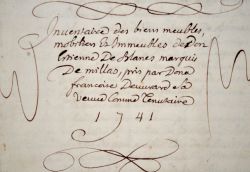 Inventaire des biens meubles,
mobilies Et Immeubles de Don
Etienne De Blanes marquis
De millas, pris par Dona
francoise
veuve Comme
1741